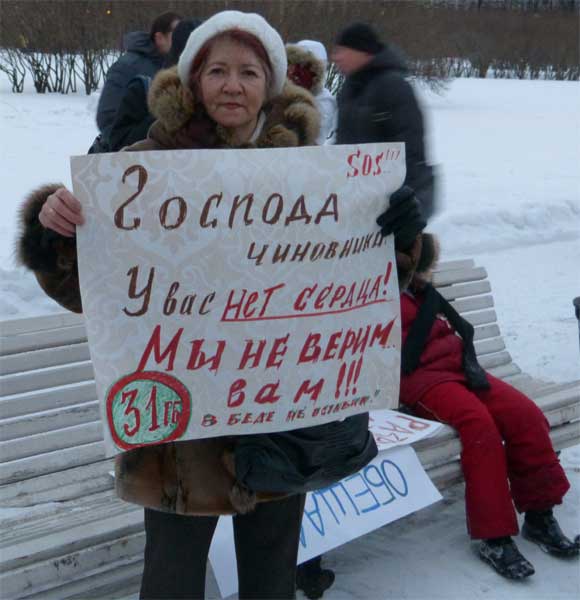 SOS!!!
Господа
чиновники
У вас нет сердца!
Мы не верим
вам!!!
31ГБ
в беде не оставим."
ОБЕЩА